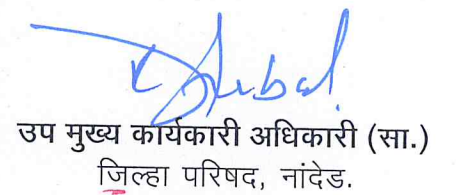 उप मुख्य कार्यकारी अधिकारी (सा.)
जिल्हा परिषद, नांदेड.